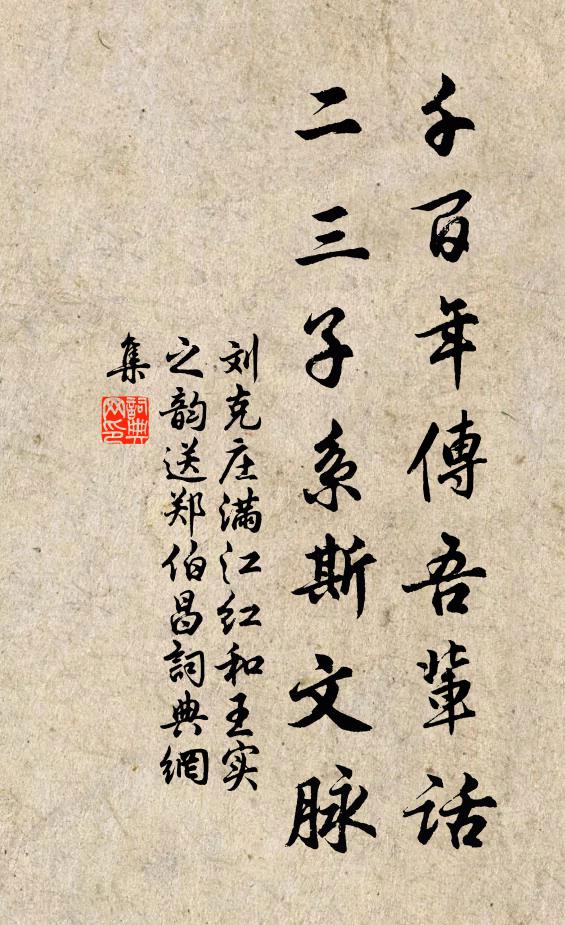 千百年傳吾輩話
二三子系斯文脉
刘克庄满江红和王实
之韵送郑伯昌詞典網
集
詞典
网印